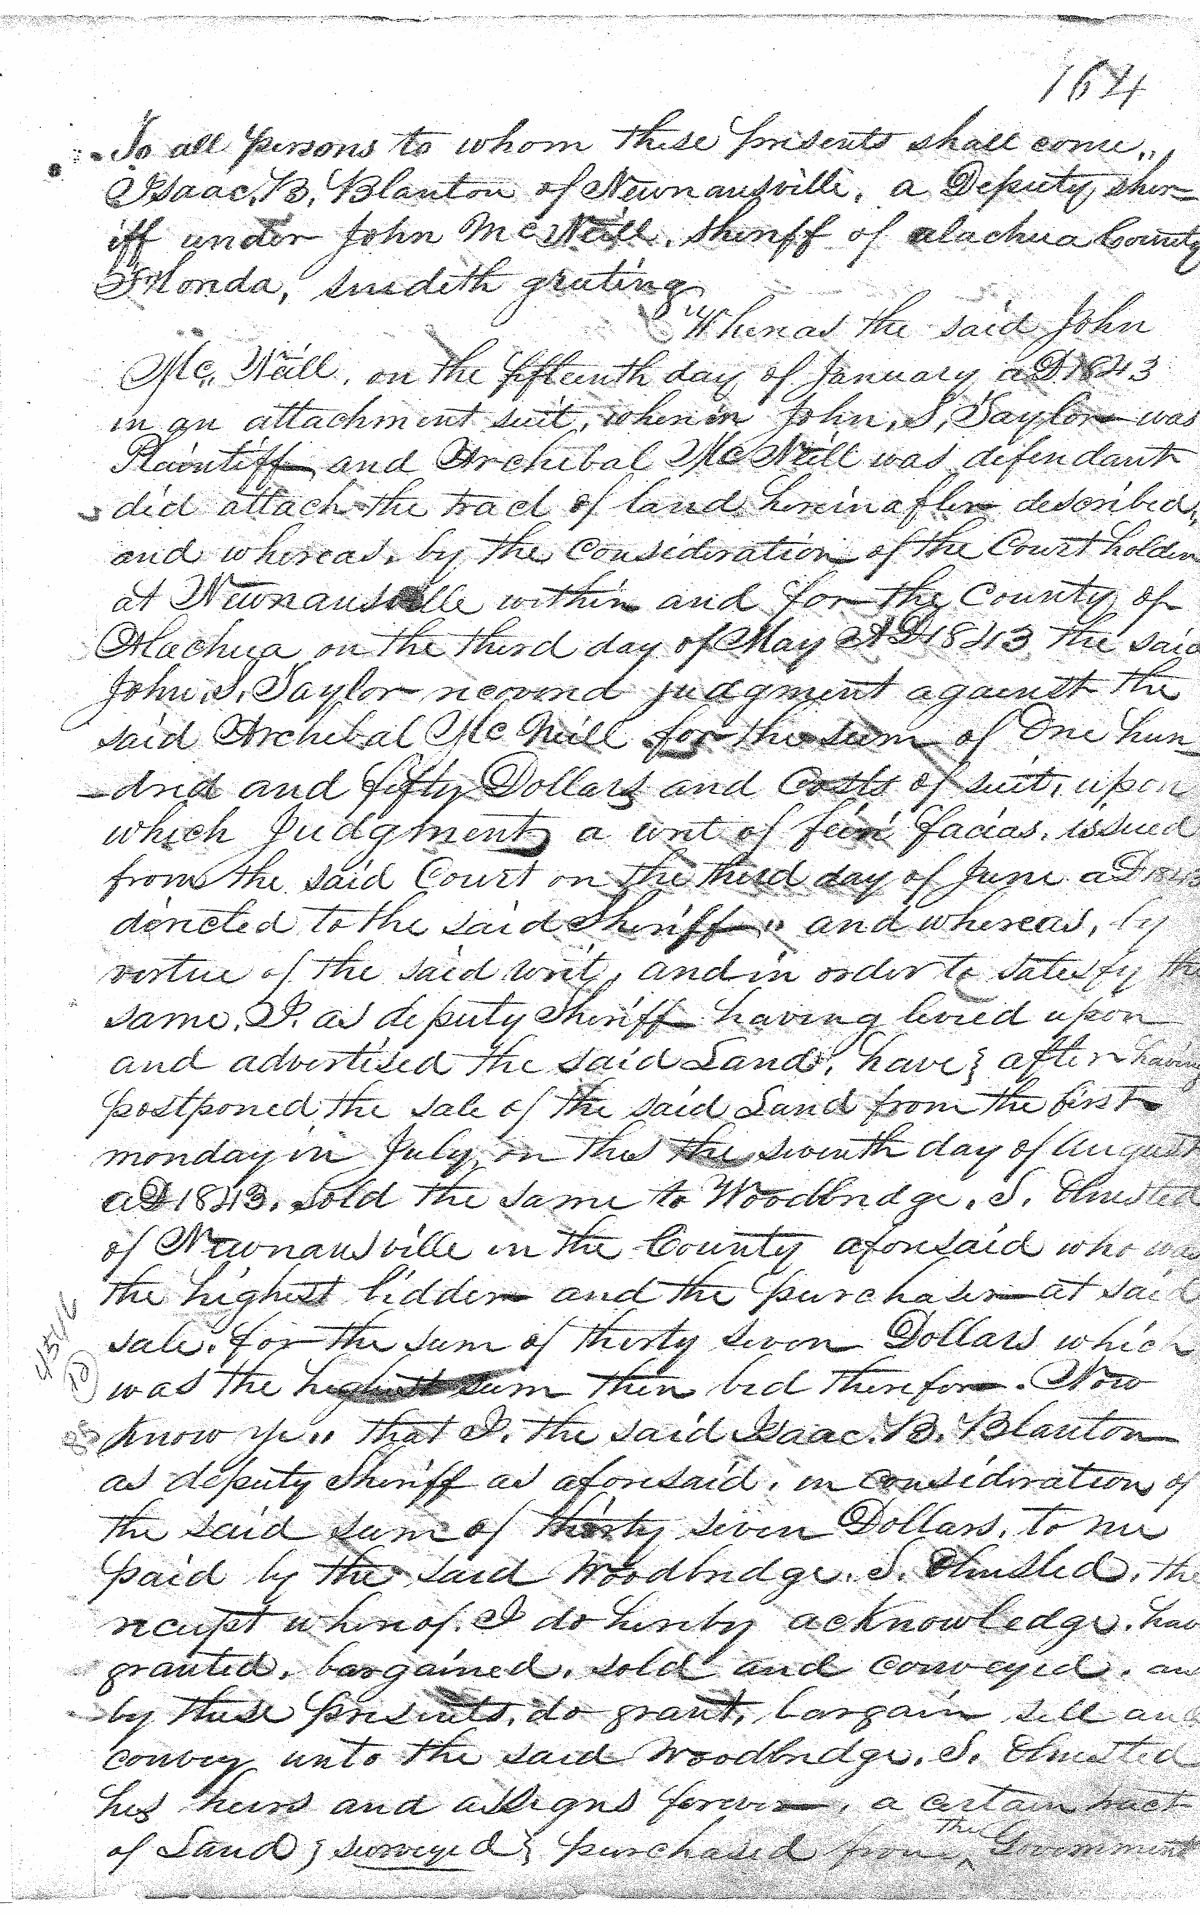 164
To all persons to whom these presents shall come,,
Isaac. B. Blanton of Newnansville, a Deputy sher=
iff under John McNeill, sheriff of alachua County
Florida, sendeth greeting
Whereas the said John
Mc,, Neill, on the fifteenth day of January aD 1843
in an attachment suit, wherein John, S, Saylor was
Plaintiff and Archibal McNeill was defendant
did attach the tract of land hereinafter described,
and whereas, by the consideration of the Court holden
at Newnansville within and for the County of
Alachua on the third day of May AD 1843 the said
John, S, Saylor recoverd judgment against the
said Archibal McNeill for the sum of One hun_
_dred and fifty Dollars and Costs of suit, upon
which Judgment, a writ of feiri facias, issued
from the said Court on the third day of June aD 1843
directed to the said Sheriff ,, and whereas, by
vertue of the said writ, and in order to satesfy the
same, I. as deputy Sheriff having levied upon
and advertised the said Land, have } after having
postponed the sale of the said Land from the first
monday in July, on this the seventh day of August
aD 1843, sold the same to Woodbridge. S. Olmsted
of Newnansville in the County aforesaid who was
the highest bidder and the purchaser at said
sale. for the sum of thirty seven Dollars which
was the highest sum then bid therefor. Now
know ye ,, that I, the said Isaac. B. Blanton
as deputy Sheriff as aforesaid, in consideration of
the said sum of thirty seven Dollars, to me
paid by the said Woodbridge. S. Olmsted, the
receipt whereof. I do hereby acknowledge, hav
granted, bargained, sold and conveyed, an
by these presents, do grant, bargain sell and
convey unto the said Woodbridge. S. Olmsted
his heirs and assigns forever, a certain tract
of Land } surveyed } purchased from the Government